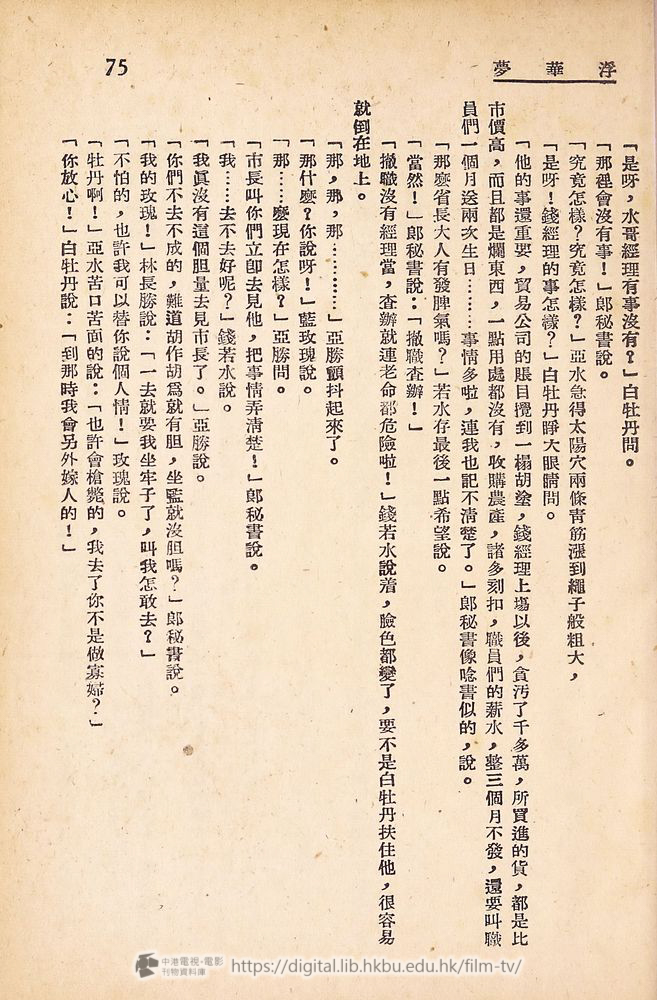 浮華夢
75
「是呀，水哥經理有事沒有？」白牡丹問。
「那裡會沒有事！」郎秘書說。
「究竟怎樣？究竟怎樣？」亞水急得太陽穴兩條靑筋漲到繩子般粗大，
「是呀！錢經理的事怎樣？」白牡丹睜大眼睛問。
「他的事還重要，貿易公司的賬目攪到一榻胡塗，錢經理上塲以後，貪污了千多萬，所買進的貨，都是比
市價高，而且都是爛東西，一點用處都沒有，收購農產，諸多刻扣，職員們的薪水，整三個月不發，還要叫職
員們一個月送兩次生日………事情多啦，連我也記不淸楚了。」郎秘書像唸書似的，說。
「那麽省長大人有發脾氣嗎？」若水存最後一點希望說。
「當然！」郎秘書說：「撤職查辦！」
「撤職沒有經理當，查辦就連老命都危險啦！」錢若水說着，臉色都變了，要不是白牡丹扶住他，很容易
就倒在地上。
「那，那，那…………」亞勝顫抖起來了。
「那什麽？你說呀！」藍玫瑰說。
「那……麽現在怎樣？」亞勝問。
「市長叫你們立卽去見他，把事情弄淸楚！」郎秘書說。
「我……去不去好呢？」錢若水說。
「我眞沒有這個胆量去見市長了。」亞勝說。
「你們不去不成的，難道胡作胡爲就有胆，坐監就沒胆嗎？」郎秘書說。
「我的玫瑰！」林長勝說：「一去就要我坐牢子了，叫我怎敢去？」
「不怕的，也許我可以替你說個人情！」玫瑰說。
「牡丹啊！」亞水苦口苦面的說：「也許會槍斃的，我去了你不是做寡婦？」
「你放心！」白牡丹說：「到那時我會另外嫁人的！」
中港電視·電影
刊物資料庫
https://digital.lib.hkbu.edu.hk/film-tv/